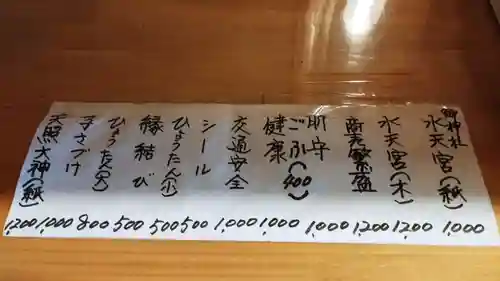 御神社
水天宮(紙) 1,000
水天宮(木) 1,200
商売繁盛 1,200
肌守 1,000
ごふ(400)
健康 1,000
交通安全 1,000
シール 500
ひょうたん(小) 500
縁結び 500
ひょうたん(大) 800
子さづけ 1,000
天照大神(紙) 1,200